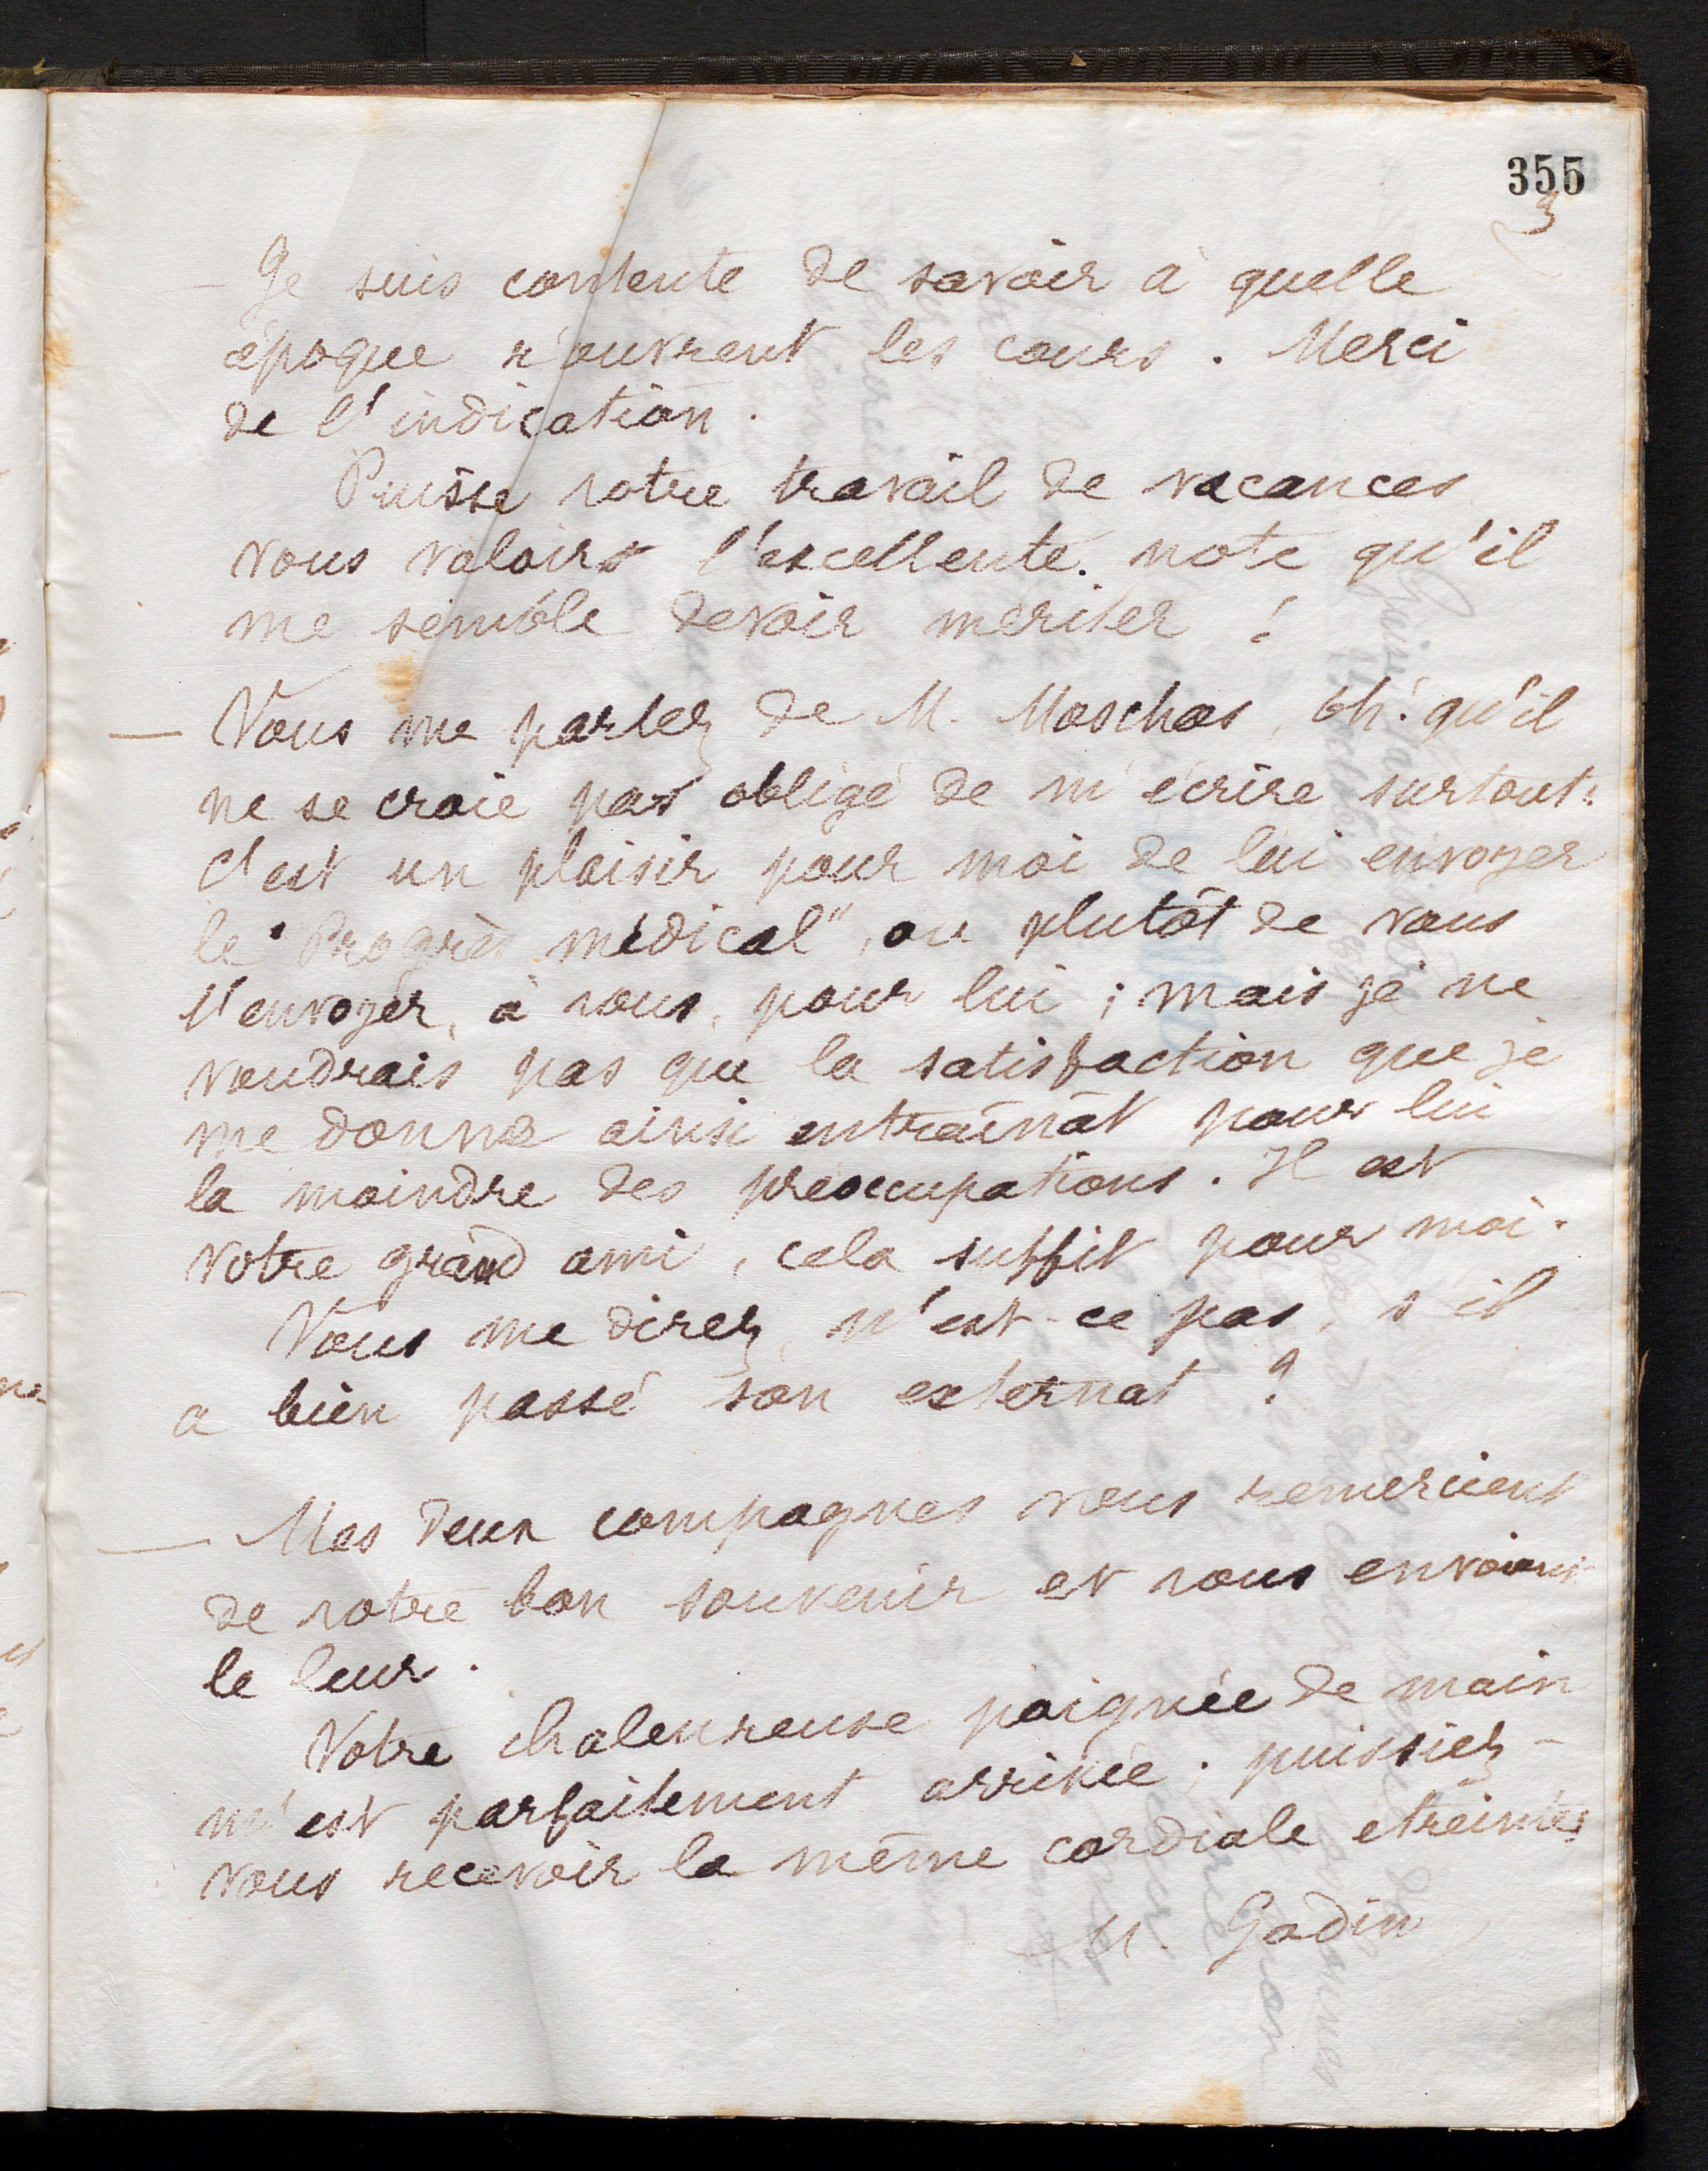 355
3
— Je suis contente de savoir à quelle
époque s'ouvrent les cours. Merci
de l'indication.
Puisse votre travail de vacances
vous valoir l'excellente note qu'il
me semble devoir mériter !
— Vous me parlez de M. Moschos, oh ! qu'il
ne se croie pas obligé de m'écrire surtout :
c'est un plaisir pour moi de lui envoyer
le "Progrès médical", ou plutôt de vous
l'envoyer, à vous, pour lui ; mais je ne
voudrais pas que la satisfaction que je
me donne ainsi entraînât pour lui
la moindre des préoccupations. Il est
votre grand ami, cela suffit pour moi.
Vous me direz, n'est-ce pas, s'il
a bien passé son externat ?
— Mes deux compagnes vous remercient
de votre bon souvenir et vous envoient
le leur.
Votre chaleureuse poignée de main
m'est parfaitement arrivée ; puissiez-
vous recevoir la même cordiale etreinte
M. Godin